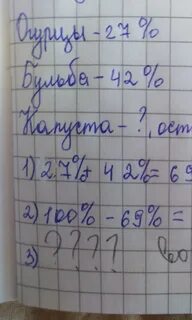 Огурцы - 27%
Бульба - 42%
Капуста - ?, ост
1) 27%+ 42%= 69
2) 100% - 69% =
3) ???? во